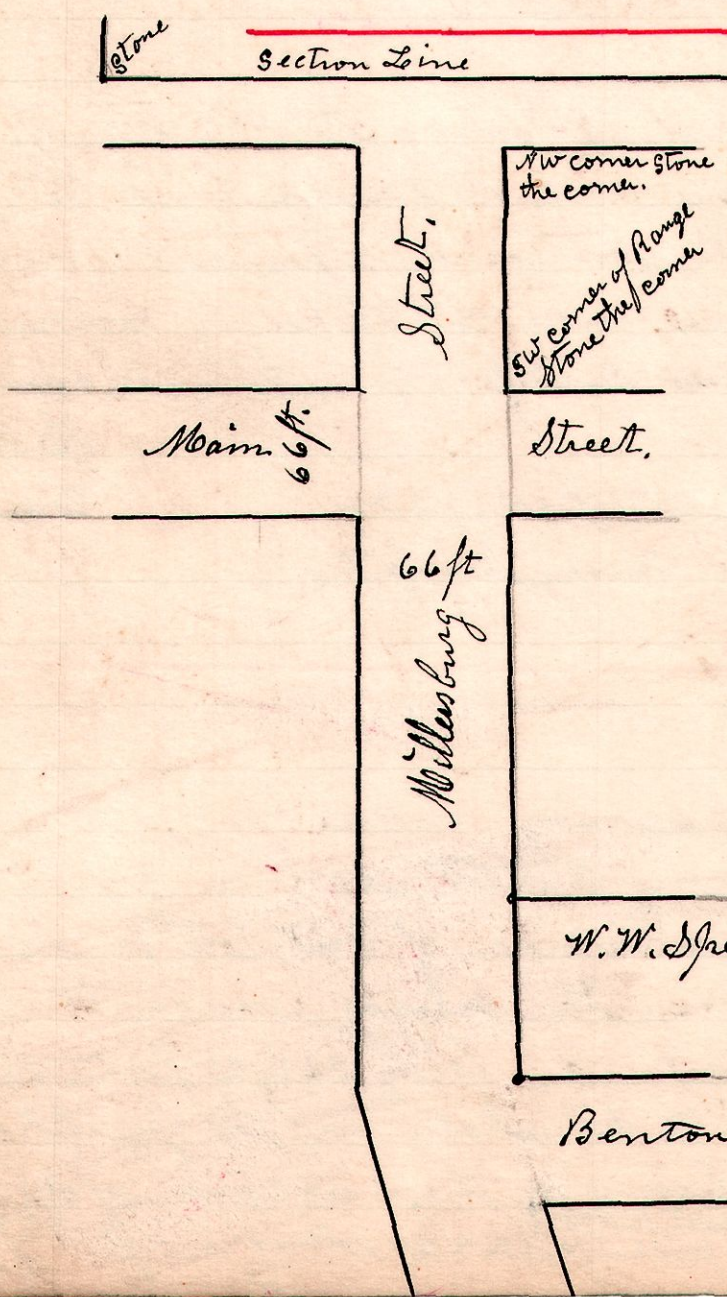 Stone
Section Line
NW corner Stone
the corner.
SW corner of Range
Stone the corner
Street.
Main 66ft.
Street.
66ft
Millersburg
W. W. Spre
Benton